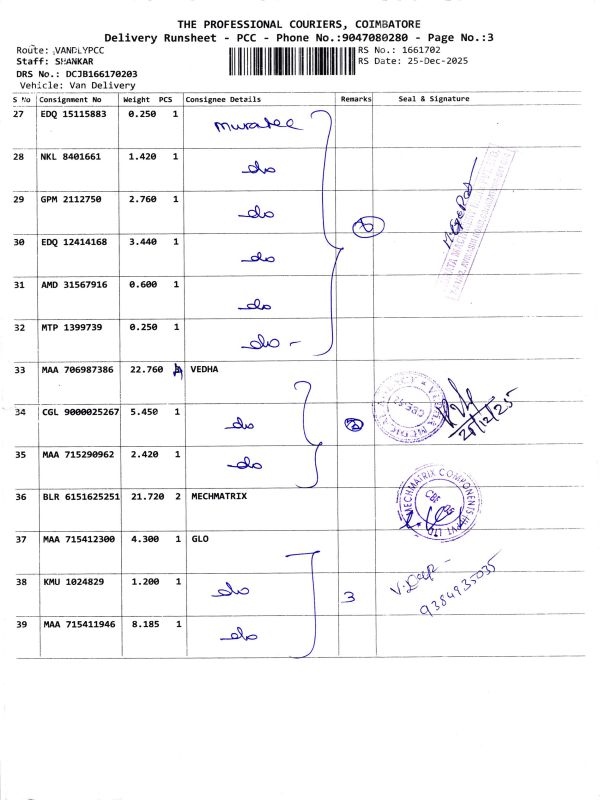 THE PROFESSIONAL COURIERS, COIMBATORE
Delivery Runsheet - PCC - Phone No.:9047080280 - Page No.:3
Route: VANDLYPCC RS No.: 1661702
Staff: SHANKAR RS Date: 25-Dec-2025
DRS No.: DCJB166170203
Vehicle: Van Delivery
S No Consignment No Weight PCS Consignee Details Remarks Seal & Signature
27 EDQ 15115883 0.250 1
28 NKL 8401661 1.420 1 do
29 GPM 2112750 2.760 1 do
30 EDQ 12414168 3.440 1 do
31 AMD 31567916 0.600 1 do
32 MTP 1399739 0.250 1 do -
33 MAA 706987386 22.760 VEDHA
34 CGL 9000025267 5.450 1 do
25/12/25
35 MAA 715290962 2.420 1 do
36 BLR 6151625251 21.720 2 MECHMATRIX
MECHMATRIX COMPONENTS PVT LTD
CBE
37 MAA 715412300 4.300 1 GLO
38 KMU 1024829 1.200 1 do 3
9384935035
39 MAA 715411946 8.185 1 do